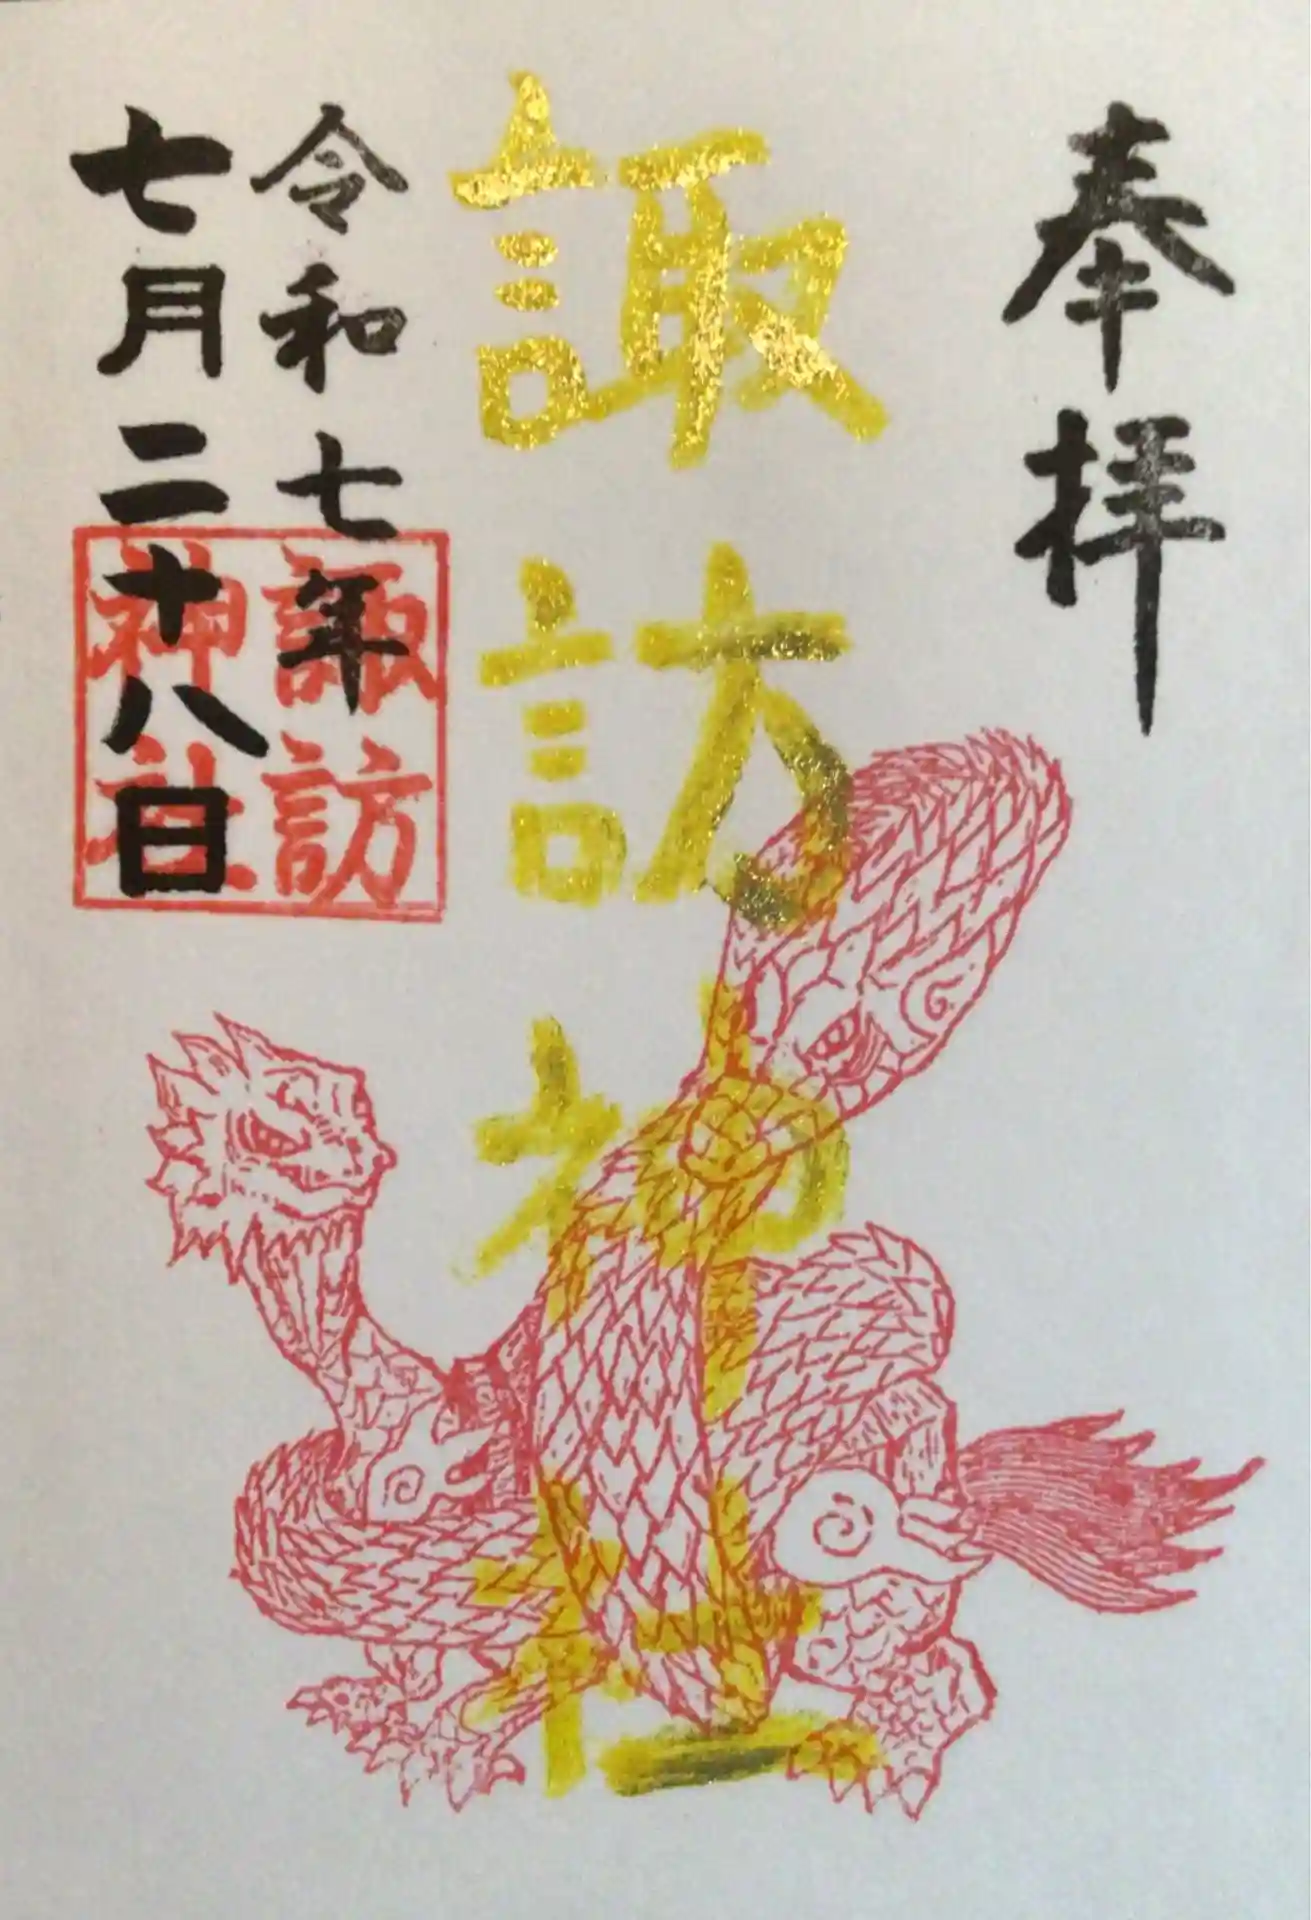 奉拝
諏訪神社
令和七年
七月二十八日
諏訪
神社